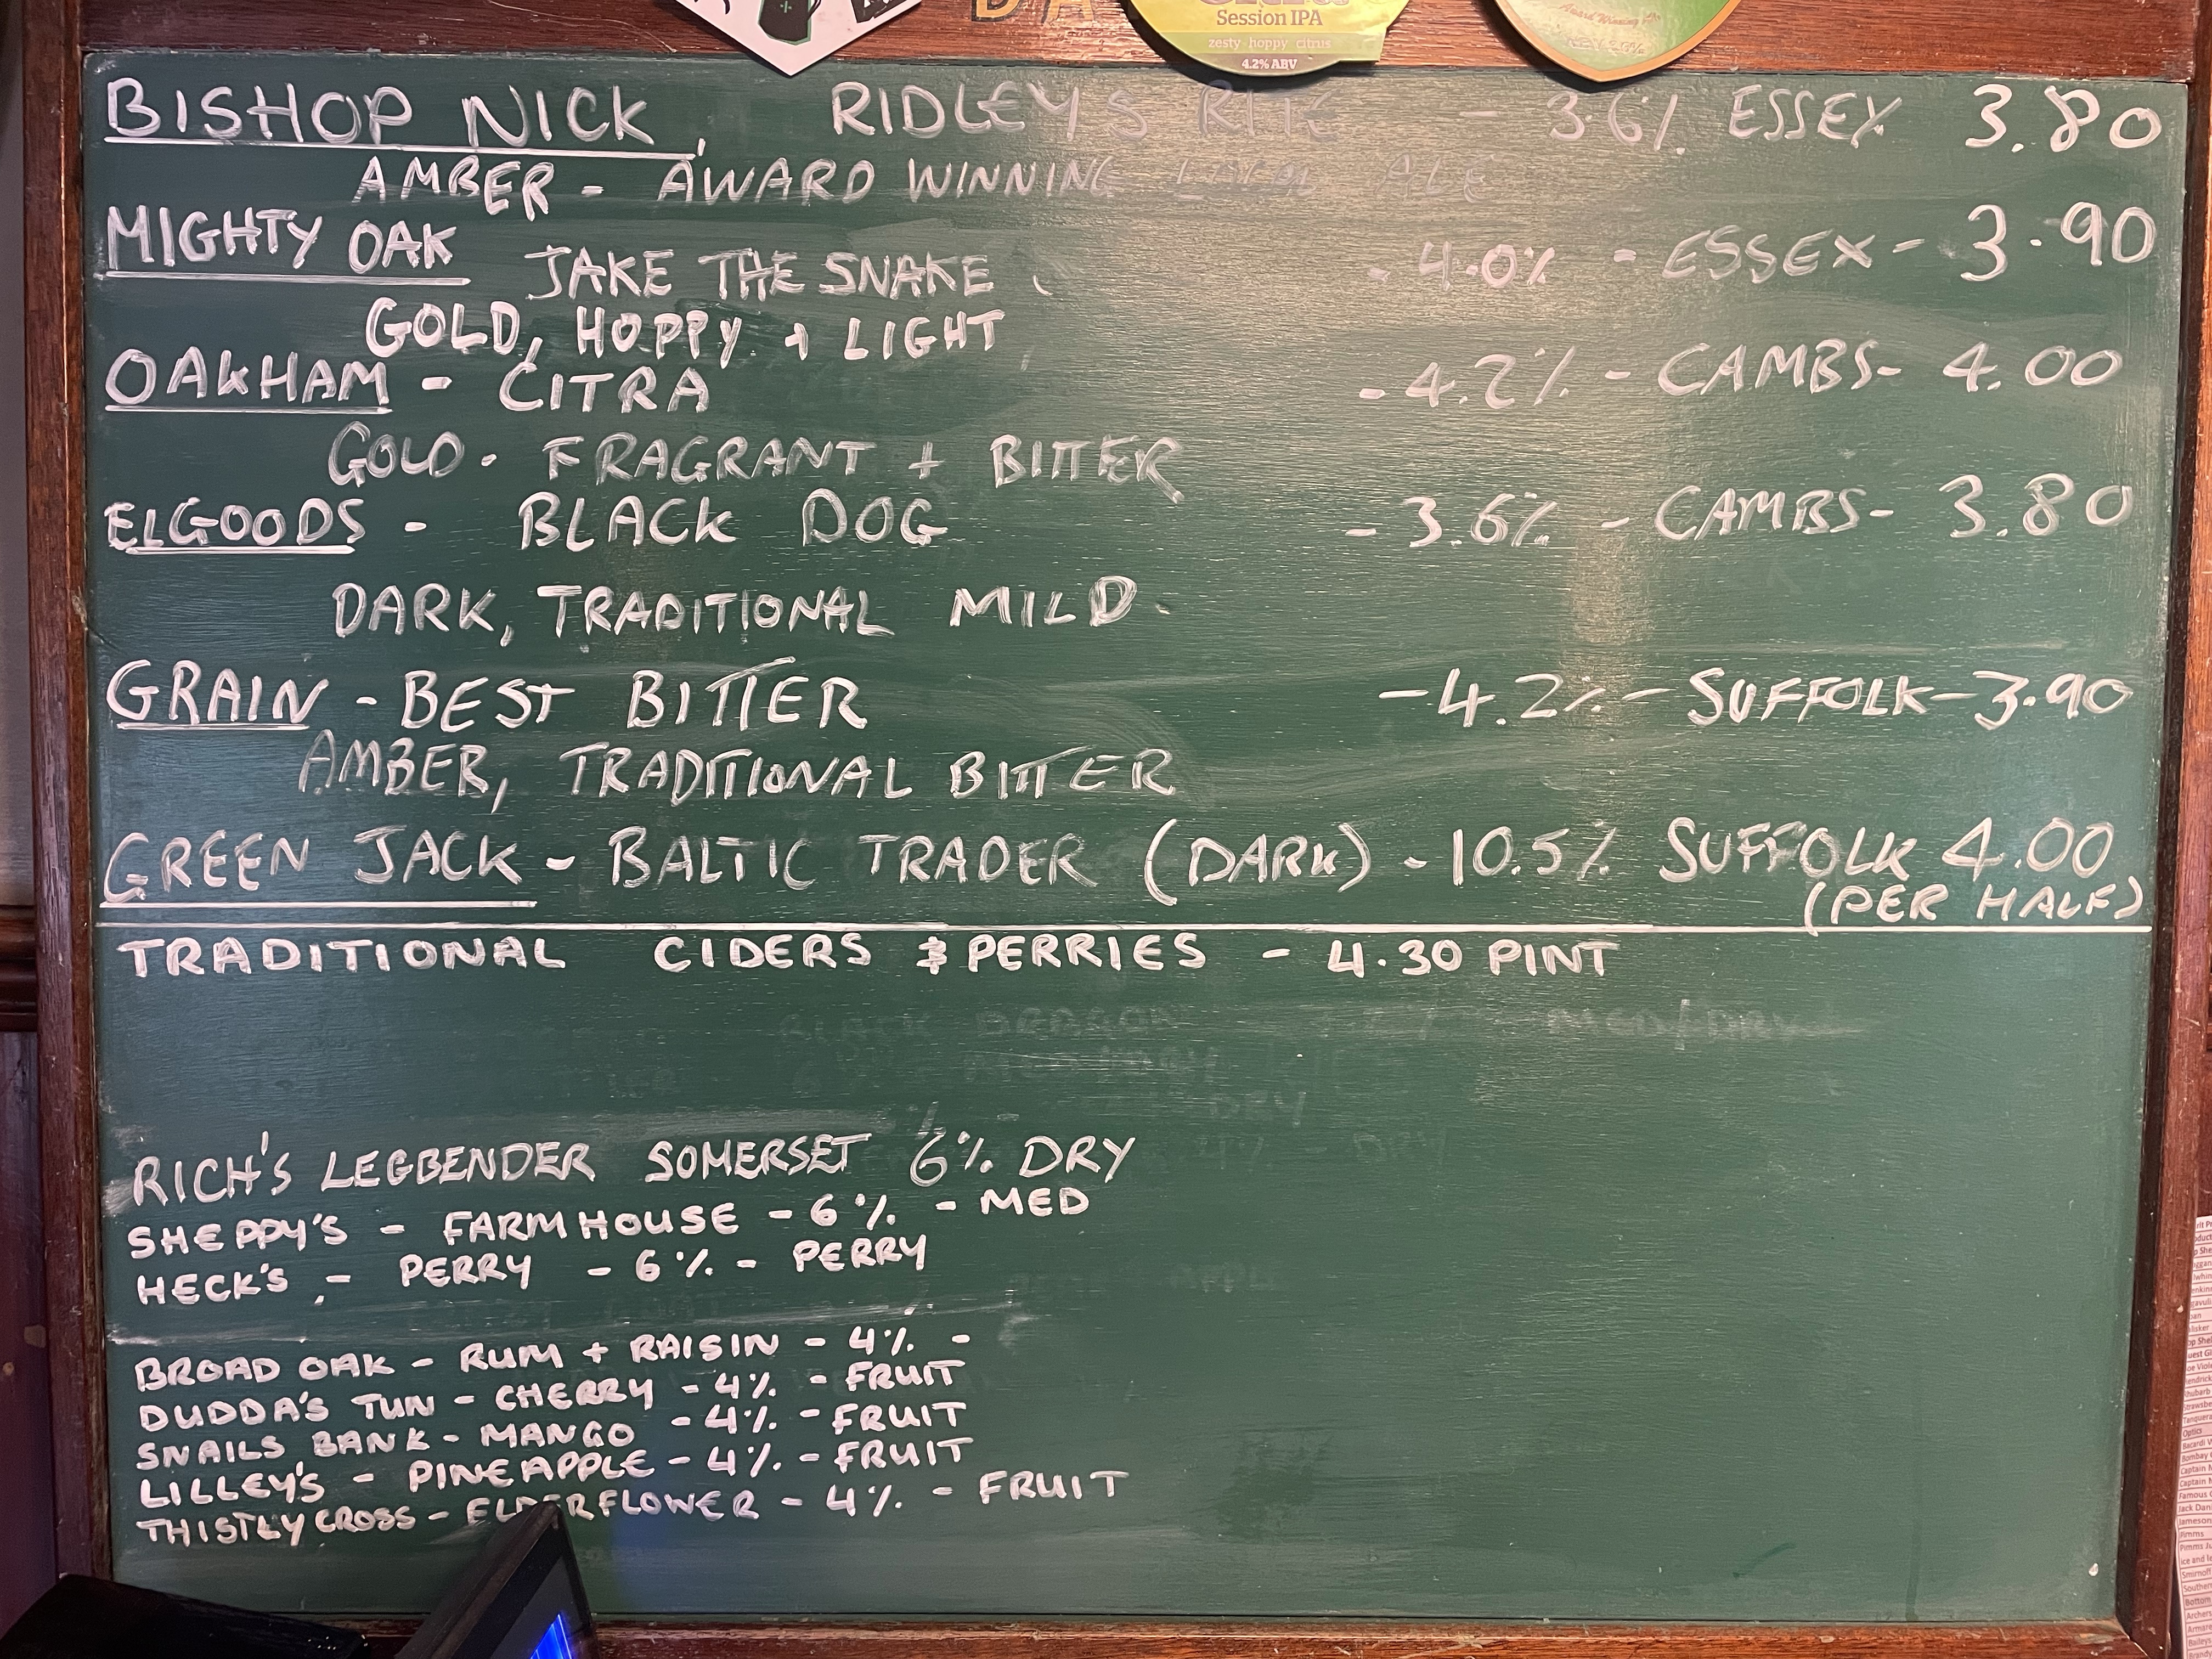 Session IPA
zesty hoppy citrus
4.2% ABV
BISHOP NICK, RIDLEY'S RITE - 3.6% ESSEX 3.80
AMBER - AWARD WINNING LOCAL ALE
MIGHTY OAK JAKE THE SNAKE - 4.0% - ESSEX - 3.90
GOLD, HOPPY + LIGHT
OAKHAM - CITRA - 4.2% - CAMBS - 4.00
GOLD - FRAGRANT + BITTER
ELGOODS - BLACK DOG - 3.6% - CAMBS - 3.80
DARK, TRADITIONAL MILD.
GRAIN - BEST BITTER - 4.2% - SUFFOLK - 3.90
AMBER, TRADITIONAL BITTER
GREEN JACK - BALTIC TRADER (DARK) - 10.5% SUFFOLK 4.00
(PER HALF)
TRADITIONAL CIDERS & PERRIES - 4.30 PINT
RICH'S LEGBENDER SOMERSET 6% DRY
SHEPPY'S - FARMHOUSE - 6% - MED
HECK'S - PERRY - 6% - PERRY
BROAD OAK - RUM + RAISIN - 4% -
DUDDA'S TUN - CHERRY - 4% - FRUIT
SNAILS BANK - MANGO - 4% - FRUIT
LILLEY'S - PINEAPPLE - 4% - FRUIT
THISTLY CROSS - ELDERFLOWER - 4% - FRUIT